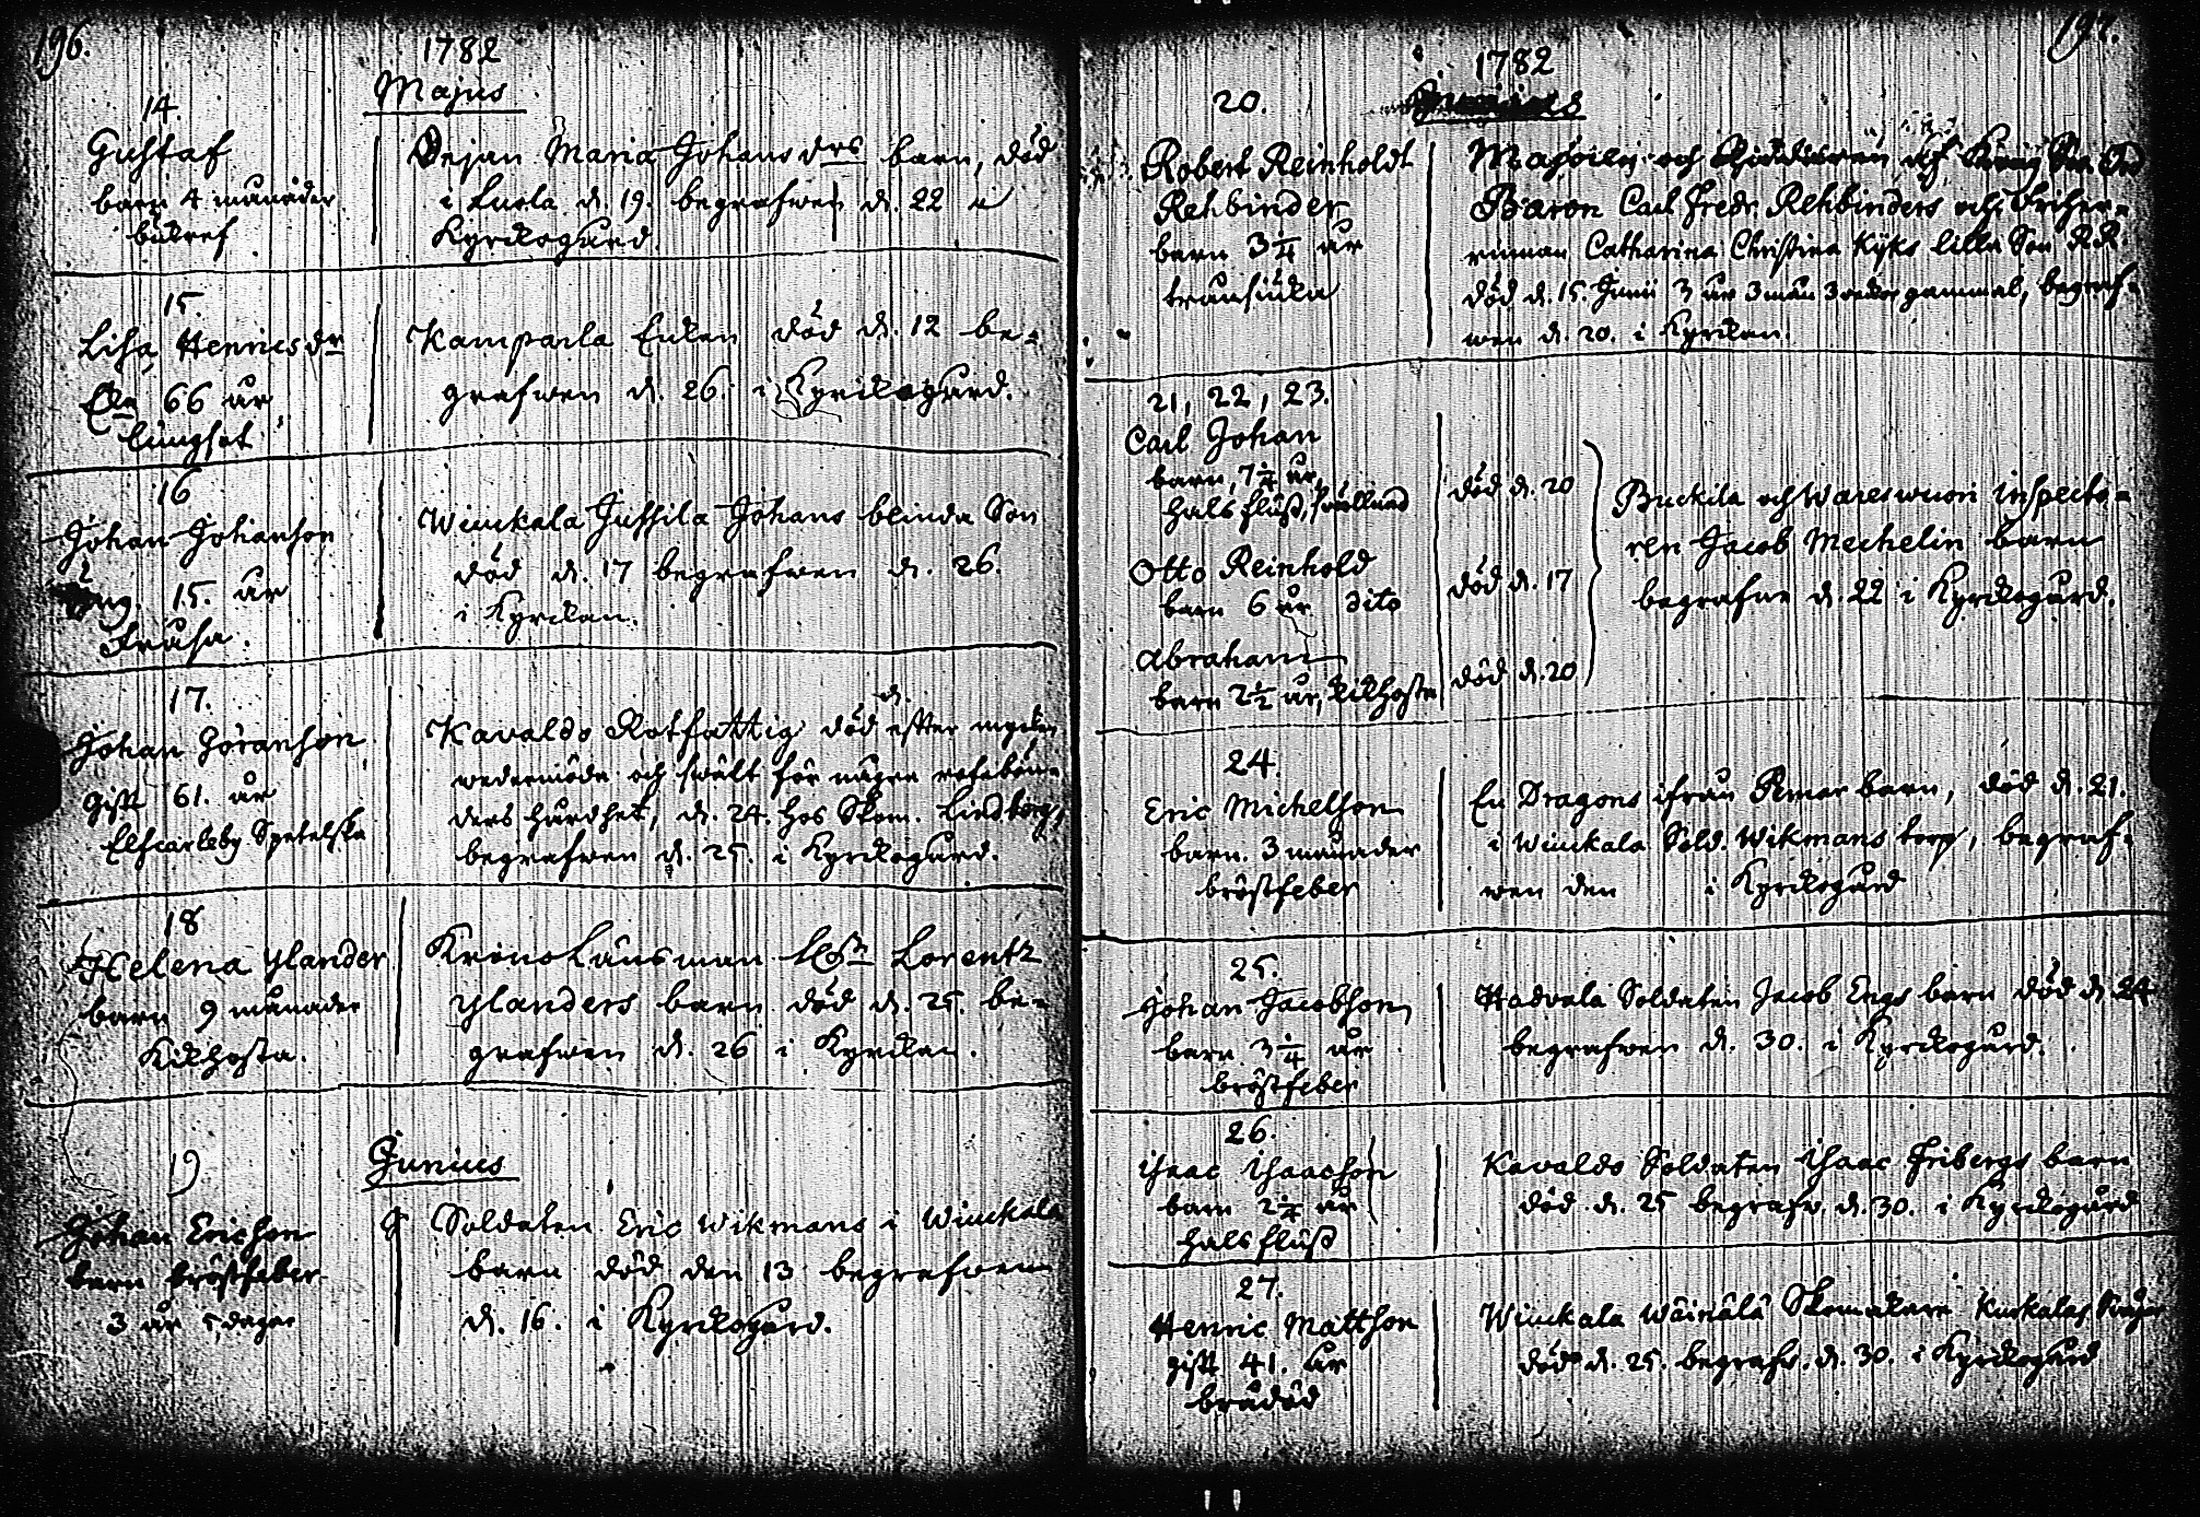 196.
1782
Majus
14.
Gustaf
barn 4 månader
bukref
Pejan Maria Johans drs barn, död
i Lurla d. 19. begrafwen d. 22 i
Kyrkogård.
15.
Lisa Henricsdr
Eka 66 år
lungsot
Kamparla Enkan död d. 12 be-
grafwen d. 26. i Kyrkogård.
16
Johan Johansson
yng. 15. år
Frusa.
Winckala Jussila Johans blinda Son
död d. 17 begrafwen d. 26.
i Kyrkan.
17.
Johan Göransson
gift 61. år
Elfcarleby Spetelska
Kavaldo Rotfattig död efter mycken
wedermöda och swält för några rotebön-
ders hårdhet, d. 24. hos Skom. Lindberg,
begrafwen d. 25. i Kyrkogård.
18
Helena Ylander
barn 9 månader
Kikhosta.
Krono Länsman Lorentz
Ylanders barn död d. 25. be-
grafwen d. 26 i Kyrkan.
Junius
19
Johan Ericsson
barn bröstfeber
3 år 5 dagar
Soldaten Eric Wikmans i Winckala
barn död den 13 begrafwen
d. 16. i Kyrkogård.
197.
1782
20.
Robert Reinholdt
Rehbinder
barn 3 1/4 år
transiuka
Majoren och Riddaren af Kongl.
Baron Carl Fredr. Rehbinders och Friher-
rinnan Catharina Christina Kijks lilla Son R.R.
död d. 15. Junii 3 år 3 mån 3 wekor gammal, begraf-
wen d. 20. i Kyrkan.
21, 22, 23.
Carl Johan
barn, 7 1/4 år,
halsfluss, swullnad
död d. 20
Otto Reinhold
barn 6 år dito
död d. 17
Abraham
barn 2 1/2 år, kikhosta
död d. 20
Buckila och Wareswuori inspecto-
ren Jacob Mechelin barn
begrafne d. 22 i Kyrkogård.
24.
Eric Michelsson
barn. 3 månader
bröstfeber
En Dragons ifrån barn, död d. 21.
i Winckala Sold. Wikmans torp, begraf-
wen den i Kyrkogård
25.
Johan Jacobsson
barn 3 1/4 år
bröstfeber
Hadvala Soldaten Jacob Engs barn död d. 24
begrafwen d. 30. i Kyrkogård.
26.
Isaac Isaacsson
barn 2 1/4 år
halsfluss
Kavaldo Soldaten Isaac Fribergs barn
död d. 25 begrafw. d. 30. i Kyrkogård
27.
Henric Mattsson
gift 41. år
brådöd
Winckala Wäinälä Skomakare
död d. 25. begrafw. d. 30. i Kyrkogård